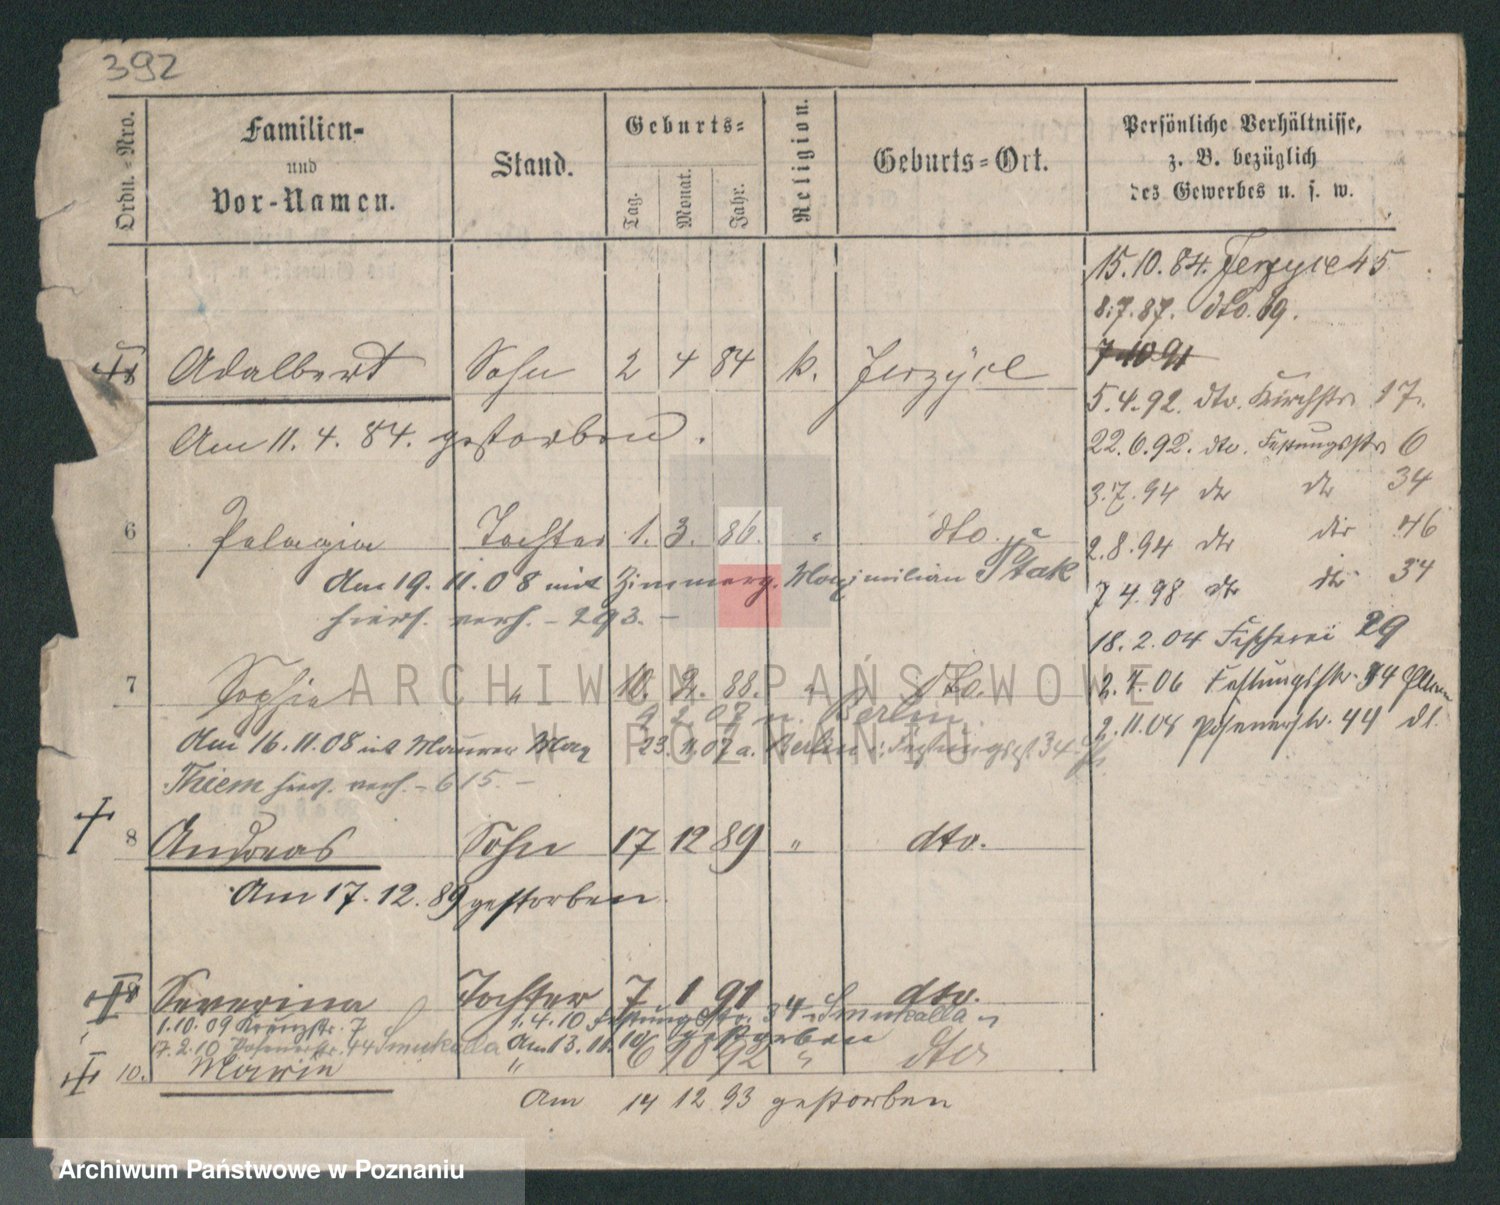 392
Ordn.-Nro.
Familien-
und
Vor-Namen.
Stand.
Geburts-
Tag.
Monat.
Jahr.
Religion.
Geburts-Ort.
Persönliche Verhältnisse,
z. B. bezüglich
des Gewerbes u. s. w.
15.10.84. Jerzyce 45
8.7.87. dto. 19.
7 10 91
5.4.92. dto. Kirchstr. 17.
22.6.92. dto. Festungsstr 6
3.7.94 dto dto 34
2.8.94 dto dto 46
7 4.98 dto dto 34
18.2.04 Fischerei 29
2.7.06 Festungsstr. 34
2.11.08 Posenerstr. 44
Adalbert Sohn 2 4 84 k. Jerzyce
Am 11. 4. 84. gestorben.
6 Pelagia Tochter 1. 3. 86. " dto.
Am 19. 11. 08 mit Zimmerg. Maximilian Ptak
hiers. verh. - 293. -
7 Sophia " 10. 2. 88. " dto.
9 2 07 n. Berlin
Am 16. 11. 08 mit Maurer Max 23. 11. 07 a. Berlin : Festungsst. 34
Thiem hiers. verh. - 615. -
8 Andreas Sohn 17 12 89 " dto.
Am 17. 12. 89 gestorben
Severina Tochter 7 1 91 dto.
1.10.09 Kreuzstr. 7 1.4.10 Festungsstr. 34 Smukalla
17.2.10 Posenerstr. 44 Smukalla Am 13. 11. 10 gestorben
10. Marie " 6 10 92 " dto
Am 14 12 93 gestorben
ARCHIWUM PAŃSTWOWE
W POZNANIU
Archiwum Państwowe w Poznaniu